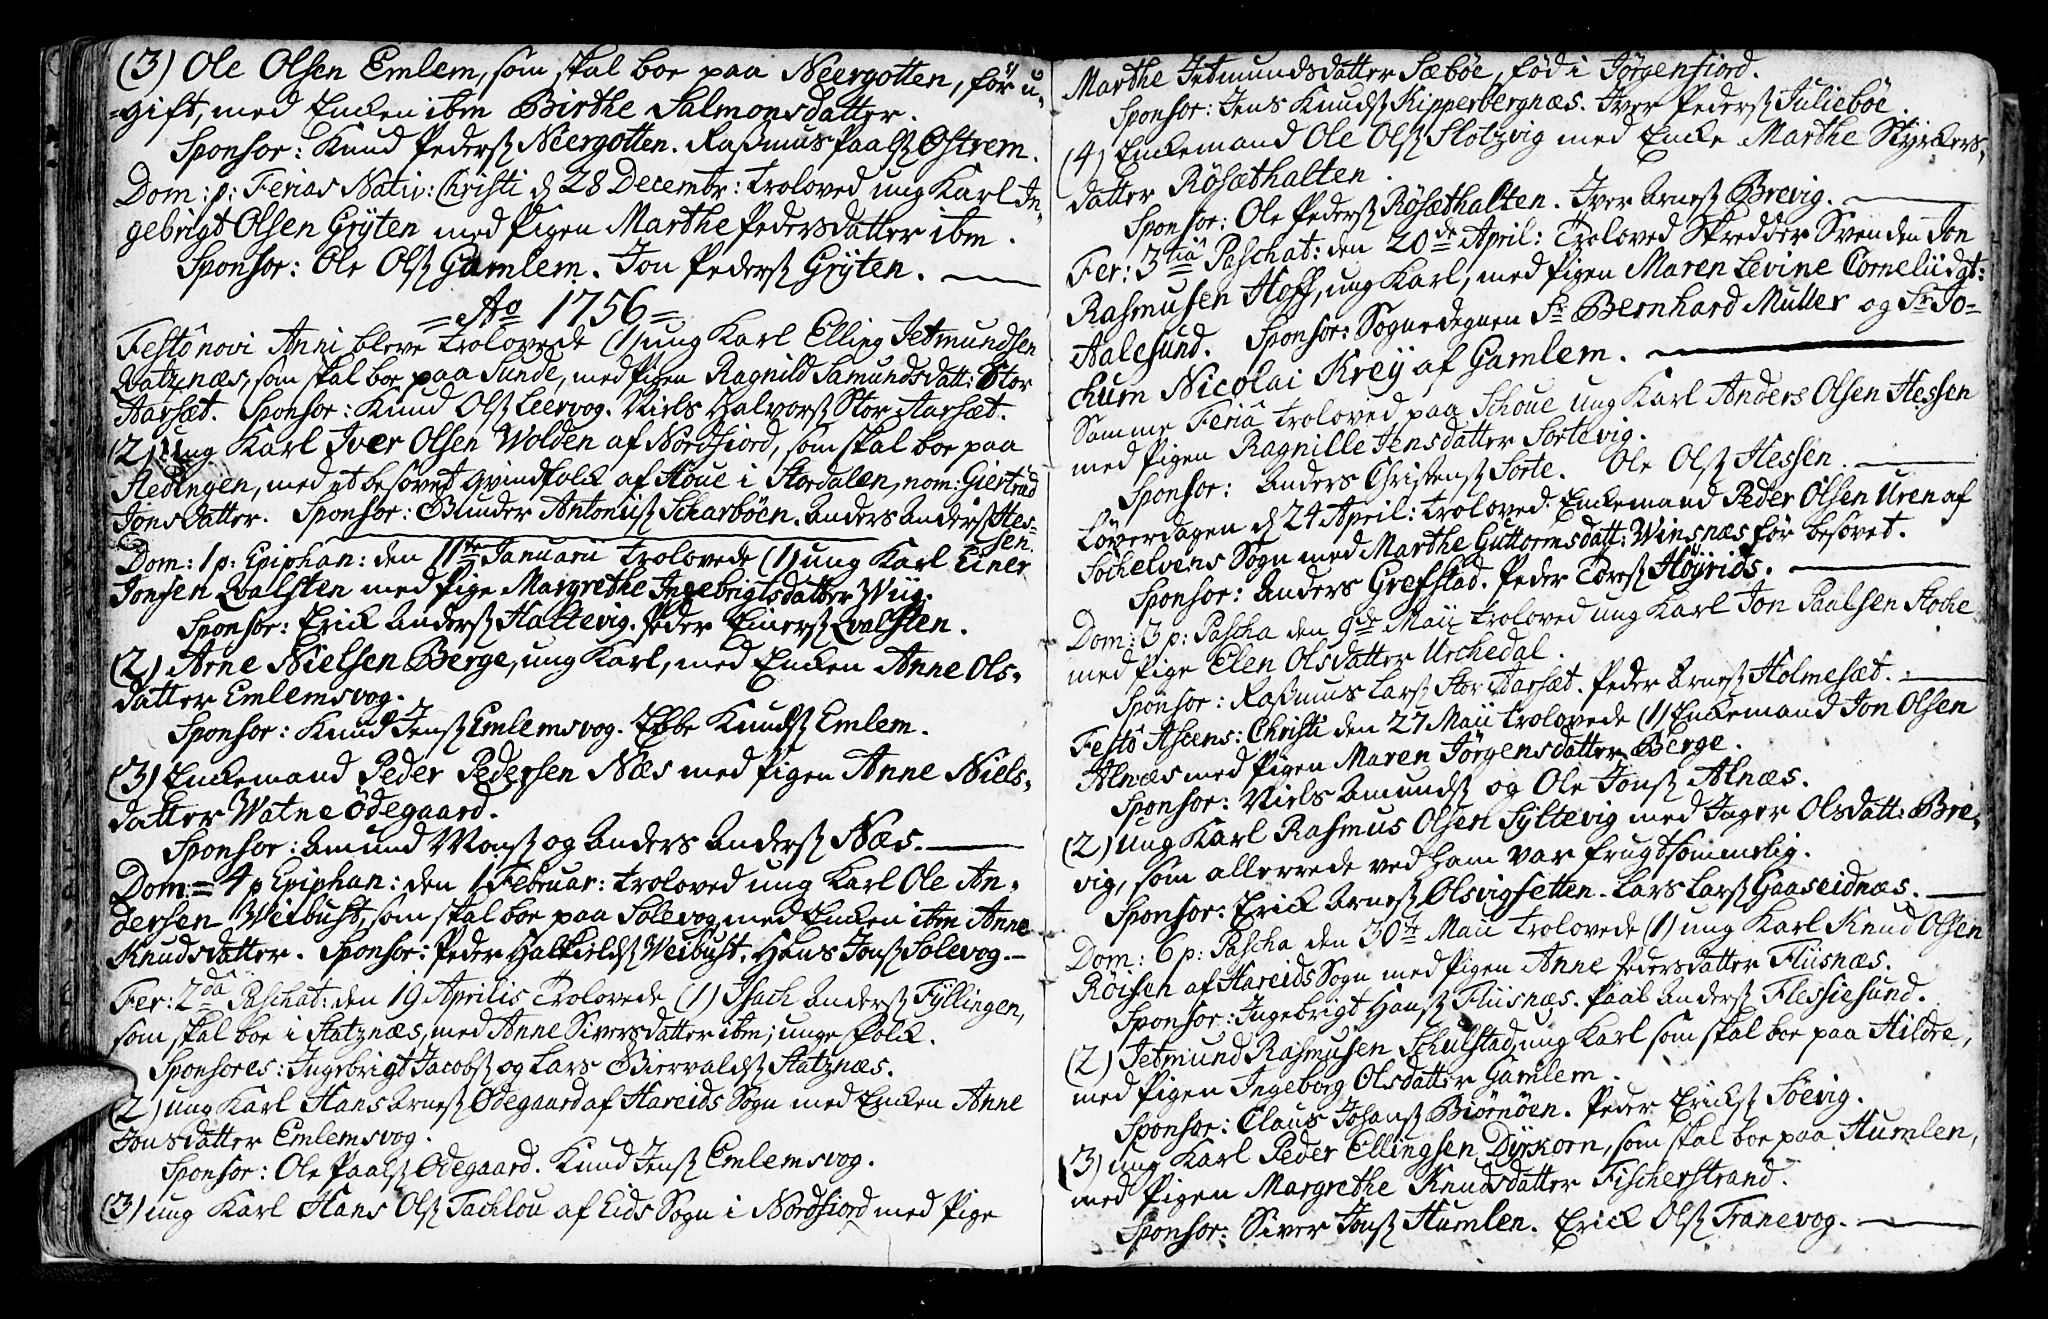 (3) Ole Olsen Emlem, som skal boe paa Neergotten, før u-
-gift, med Encken ibm Birthe Salmonsdatter.
Sponsor: Knud Pederß Neergotten. Raßmus Paalß Østrem.
Dom: p: Ferias Nativ: Christi d 28 Decembr: troloved ung Karl In-
gebrigt Olsen Grÿten med Pigen Marthe Pedersdatter ibm.
Sponsor: Ole Olß Gamlem. Jon Pederß Grÿten.
= Ao 1756 =
Festô novi Anni bleve trolovede (1) ung Karl Elling Jetmundsen
Ratznæs, som skal boe paa Sunde, med Pigen Ragnild Samundsdatt: Stor
Aarsæt. Sponsor: Knud Olß Leervog. Niels Halvorß Stor Aarsæt.
(2) Ung Karl Iver Olsen Wolden af Nordfiord, som skal boe paa
Hedingen, med et besovet qvindfolk af Houe i Stordalen, nom: Giertrud
Jonsdatter. Sponsor: Gunder Antoniiß Scharböen. Anders Anderß Hes-
sen.
Dom: 1 p: Epiphan: den 11te Januarii trolovede (1) ung Karl Einer
Jonsen Qvalsten med Pige Margrethe Ingebrigtsdatter Wiig.
Sponsor: Erick Anderß Haltevig. Peder Einerß Qvalsten.
(2) Arne Nielsen Berge, ung Karl, med Encken Anne Ols-
datter Emlemsvog.
Sponsor: Knud Jenß Emlemsvog. Ebbe Knudß Emlem.
(3) Enckemand Peder Pedersen Næs med Pigen Anne Niels-
datter Watne Ödegaard.
Sponsor: Amund Monß og Anders Anderß Næs.
Dom: = 4 p Epiphan: den 1 Februar: troloved ung Karl Ole An-
dersen Weibust, som skal boe paa Solevog med Encken ibm Anne
Knudsdatter. Sponsor: Peder Halkieldß Weibust. Hans Jonß Solevog.
Fer: 2da Paschat: den 19 Aprilis Trolovede (1) Isach Anderß Fÿllingen,
som skal boe i Statznæs, med Anne Siversdatter ibm; unge folck.
Sponsores: Ingebrigt Jacobß og Lars Biervaldß Statznæs.
(2) ung Karl Hans Arneß Ødegaard af Hareids Sogn med Encken Anne
Jonsdatter Emlemsvog.
Sponsor: Ole Paalß Ødegaard. Knud Jenß Emlemsvog.
(3) ung Karl Hans Olß Tachlou af Eids Sogn i Nordfiord med Pige
Marthe Jetmundsdatter Sæbøe, fød i Jørgenfiord.
Sponsor: Jens Knudß Kipperbergnæs. Iver Pederß Juliebøe.
(4) Enckemand Ole Olß Slotzvig med Encke Marthe Stÿrkers-
datter Røsæthalten.
Sponsor: Ole Pederß Røsæthalten. Iver Arneß Brevig.
Fer: 3tiâ Paschat: den 20de April: Troloved Skredder Svenden Jon
Rasmusen Hoff, ung Karl, med Pigen Maren Levine Corneliidgt:
Aalesund. Sponsor: Sognedegnen Sr Bernhard Muller og Sr Jo-
chum Nicolai Kreÿ af Gamlem.
Samme Feriâ troloved paa Schoue ung Karl Anders Olsen Hessen
med Pigen Ragnille Jensdatter Sortevig.
Sponsor: Anders Christenß Sorte. Ole Olß Hessen.
Løverdagen d 24 April: troloved Enckemand Peder Olsen Uren af
Sochelvens Sogn med Marthe Guttormsdatt: Winsnæs før besovet.
Sponsor: Anders Grefstad. Peder Toreß Høÿrids.
Dom: 3 p: Pascha den 9de Maij troloved ung Karl Jon Paalsen Hoche
med Pige Elen Olsdatter Urchedal.
Sponsor: Raßmus Larß Stor Aarsæt. Peder Arneß Holmesæt.
Festô Ascens: Christi den 27 Maii trolovede (1) Enckemand Jon Olsen
Alnæs med Pigen Maren Jörgensdatter Berge.
Sponsor: Niels Amundß og Ole Jonß Alnæs.
(2) ung Karl Rasmus Olsen Syltevig med Inger Olsdatt: Bre-
vig, som allerrede ved ham var frugtsommelig.
Sponsor: Erick Arneß Olsvigsetten. Lars Larß Gaaseidnæs.
Dom: 6 p: Pascha den 30te Maii trolovede (1) ung Karl Knud Olsen
Røisen af Hareids Sogn med Pigen Anne Pedersdatter Fliisnæs.
Sponsor: Ingebrigt Hanß Fliisnæs. Paal Anderß Flessiesund.
(2) Jetmund Rasmusen Schulstad, ung Karl som skal boe paa Hildre,
med Pigen Ingeborg Olsdatter Gamlem.
Sponsor: Claus Johanß Biørnøen. Peder Erickß Søevig.
(3) ung Karl Peder Ellingsen Dÿrkorn, som skal boe paa Humlen,
med Pigen Margrethe Knudsdatter Fischerstrand.
Sponsor: Siver Jonß Humlen. Erick Olß Tranevog.